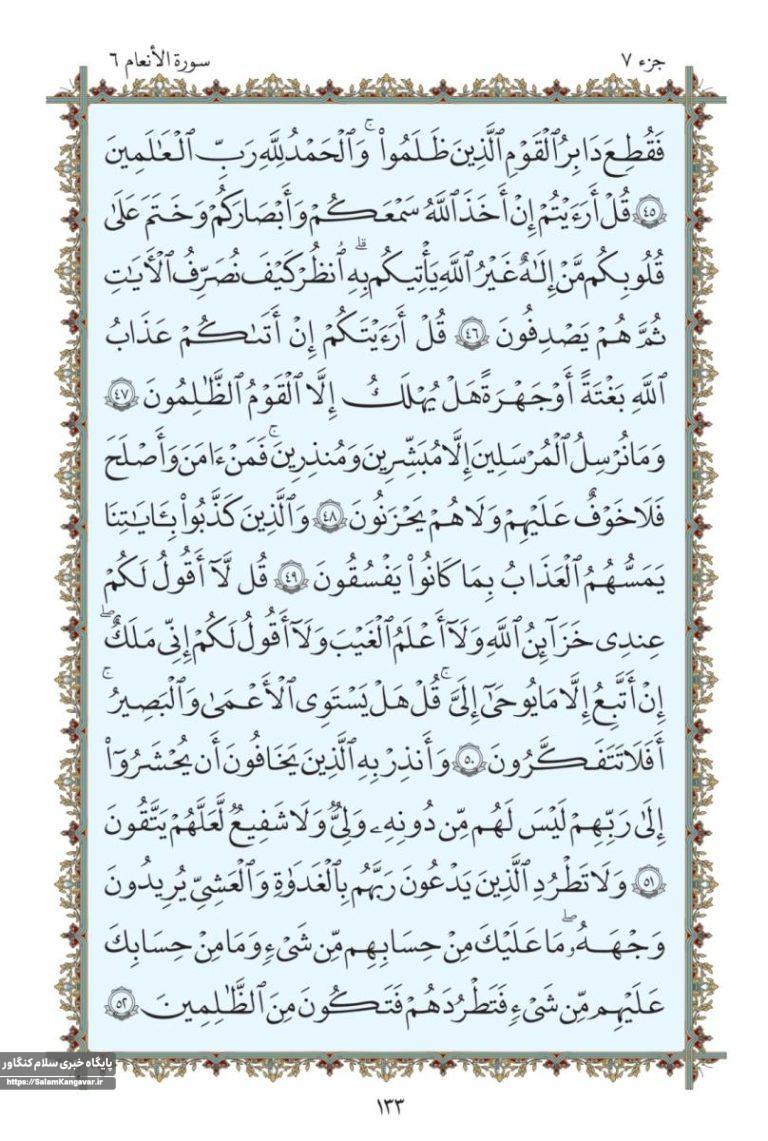 جزء ٧
سورة الأنعام ٦
فَقُطِعَ دَابِرُ ٱلْقَوْمِ ٱلَّذِينَ ظَلَمُوا۟ ۚ وَٱلْحَمْدُ لِلَّهِ رَبِّ ٱلْعَـٰلَمِينَ
٤٥ قُلْ أَرَءَيْتُمْ إِنْ أَخَذَ ٱللَّهُ سَمْعَكُمْ وَأَبْصَـٰرَكُمْ وَخَتَمَ عَلَىٰ
قُلُوبِكُم مَّنْ إِلَـٰهٌ غَيْرُ ٱللَّهِ يَأْتِيكُم بِهِ ۗ ٱنظُرْ كَيْفَ نُصَرِّفُ ٱلْـَٔايَـٰتِ
ثُمَّ هُمْ يَصْدِفُونَ ٤٦ قُلْ أَرَءَيْتَكُمْ إِنْ أَتَىٰكُمْ عَذَابُ
ٱللَّهِ بَغْتَةً أَوْ جَهْرَةً هَلْ يُهْلَكُ إِلَّا ٱلْقَوْمُ ٱلظَّـٰلِمُونَ ٤٧
وَمَا نُرْسِلُ ٱلْمُرْسَلِينَ إِلَّا مُبَشِّرِينَ وَمُنذِرِينَ ۖ فَمَنْ ءَامَنَ وَأَصْلَحَ
فَلَا خَوْفٌ عَلَيْهِمْ وَلَا هُمْ يَحْزَنُونَ ٤٨ وَٱلَّذِينَ كَذَّبُوا۟ بِـَٔايَـٰتِنَا
يَمَسُّهُمُ ٱلْعَذَابُ بِمَا كَانُوا۟ يَفْسُقُونَ ٤٩ قُل لَّآ أَقُولُ لَكُمْ
عِندِى خَزَآئِنُ ٱللَّهِ وَلَآ أَعْلَمُ ٱلْغَيْبَ وَلَآ أَقُولُ لَكُمْ إِنِّى مَلَكٌ ۖ
إِنْ أَتَّبِعُ إِلَّا مَا يُوحَىٰٓ إِلَىَّ ۚ قُلْ هَلْ يَسْتَوِى ٱلْأَعْمَىٰ وَٱلْبَصِيرُ ۚ
أَفَلَا تَتَفَكَّرُونَ ٥٠ وَأَنذِرْ بِهِ ٱلَّذِينَ يَخَافُونَ أَن يُحْشَرُوٓا۟
إِلَىٰ رَبِّهِمْ لَيْسَ لَهُم مِّن دُونِهِۦ وَلِىٌّ وَلَا شَفِيعٌ لَّعَلَّهُمْ يَتَّقُونَ
٥١ وَلَا تَطْرُدِ ٱلَّذِينَ يَدْعُونَ رَبَّهُم بِٱلْغَدَوٰةِ وَٱلْعَشِىِّ يُرِيدُونَ
وَجْهَهُۥ ۖ مَا عَلَيْكَ مِنْ حِسَابِهِم مِّن شَىْءٍ وَمَا مِنْ حِسَابِكَ
عَلَيْهِم مِّن شَىْءٍ فَتَطْرُدَهُمْ فَتَكُونَ مِنَ ٱلظَّـٰلِمِينَ ٥٢
پایگاه خبری سلام کنگاور
https://SalamKangavar.ir
١٣٣